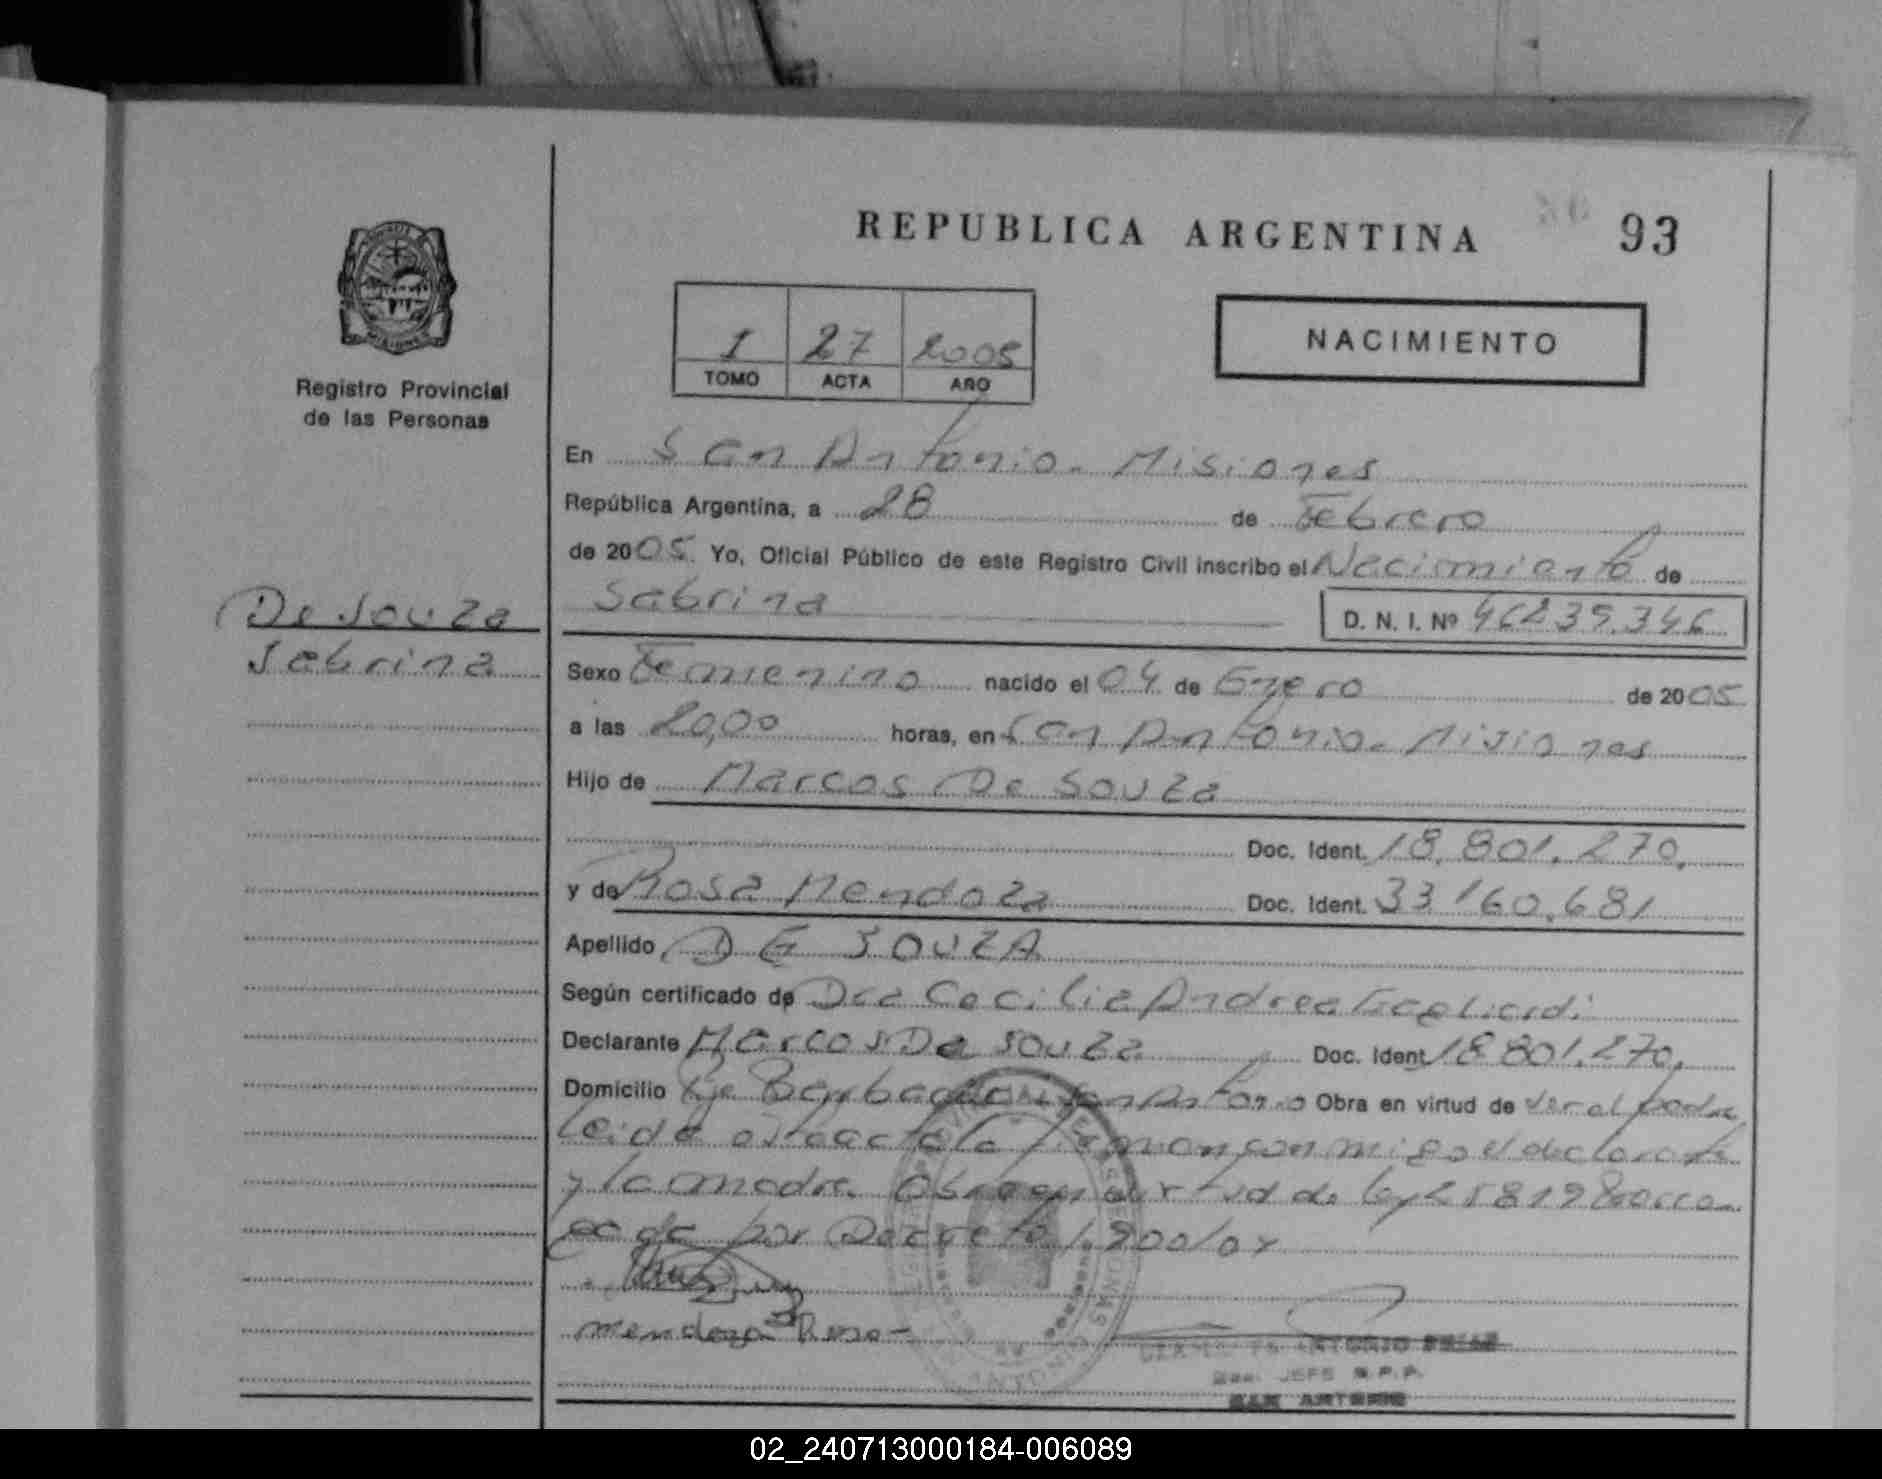 REPUBLICA ARGENTINA 93
1 27 2005
TOMO ACTA AÑO
NACIMIENTO
Registro Provincial
de las Personas
En San Antonio. Misiones
República Argentina, a 28 de Febrero
de 2005. Yo, Oficial Público de este Registro Civil inscribo el Nacimiento de
Sabrina D. N. I. Nº 46.239.346
De Souza
Sabrina
Sexo Femenino nacido el 04 de Enero de 2005
a las 20,00 horas, en San Antonio. Misiones
Hijo de Marcos De Souza
Doc. Ident. 18.801.270.
y de Rosa Mendoza Doc. Ident. 33.160.681
Apellido DE SOUZA
Según certificado de Dra Cecilia Andrea Gagliardi
Declarante Marcos De Souza Doc. Ident. 18.801.270.
Domicilio San Antonio Obra en virtud de ser el padre
Leida el acta la firman conmigo el declarante
y la madre. Obra en virtud de ley 25819
por Decreto 1.900/04
Mendoza Rosa -
ANTONIO
JEFE R.P.P.
SAN ANTONIO
02_240713000184-006089